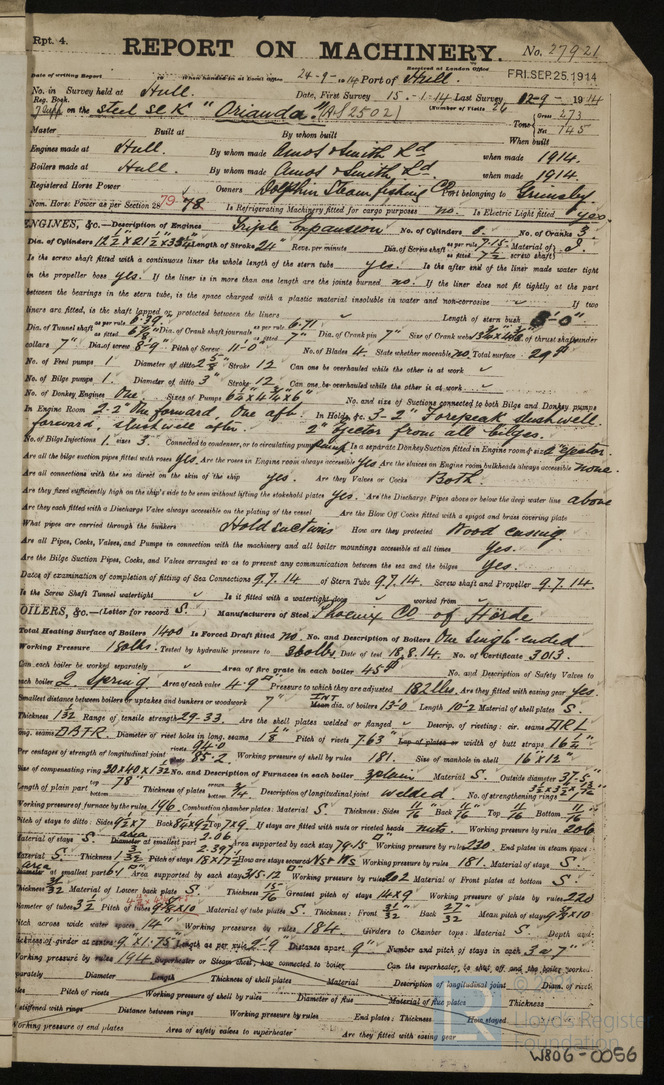 Rpt. 4.
REPORT ON MACHINERY. No. 27921
Received at London Office FRI. SEP. 25. 1914
Date of writing Report 19 When handed in at Local Office 24-9-1914 Port of Hull.
No. in Survey held at Hull. Date, First Survey 15-1-14 Last Survey 1914
Reg. Book. (Number of Visits 26
on the steel sc K "Orianda" Tons Gross 273 Net 145
Master Built at By whom built When built
Engines made at Hull. By whom made Amos & Smith Ld when made 1914.
Boilers made at Hull. By whom made Amos & Smith Ld. when made 1914.
Registered Horse Power Owners Dolphin Steam fishing Co Port belonging to Grimsby.
Nom. Horse Power as per Section 28 79 78 Is Refrigerating Machinery fitted for cargo purposes no. Is Electric Light fitted yes.
ENGINES, &c.—Description of Engines Triple Expansion No. of Cylinders No. of Cranks 3
Dia. of Cylinders Length of Stroke 24" Revs. per minute Dia. of Screw shaft as per rule 7.15 as fitted 7½ Material of screw shaft
Is the screw shaft fitted with a continuous liner the whole length of the stern tube yes. Is the after end of the liner made water tight
in the propeller boss yes. If the liner is in more than one length are the joints burned no. If the liner does not fit tightly at the part
between the bearings in the stern tube, is the space charged with a plastic material insoluble in water and non-corrosive If two
liners are fitted, is the shaft lapped or protected between the liners Length of stern bush
Dia. of Tunnel shaft as per rule 6.39 as fitted Dia. of Crank shaft journals as per rule 6.71 as fitted 7" Dia. of Crank pin 7" Size of Crank webs Dia. of thrust shaft under
collars 7" Dia. of screw 8'-9" Pitch of Screw 11'-0" No. of Blades 4 State whether moveable no Total surface 29
No. of Feed pumps 1 Diameter of ditto 2⅝" Stroke 12 Can one be overhauled while the other is at work
No. of Bilge pumps 1 Diameter of ditto 3" Stroke 12 Can one be overhauled while the other is at work
No. of Donkey Engines One. Sizes of Pumps No. and size of Suctions connected to both Bilge and Donkey pumps
In Engine Room 2-2" One forward, One aft. In Holds, &c. 3-2" Forepeak slushwell
forward, slushwell aftin. 2" Ejector from all bilges.
No. of Bilge Injections 1 sizes 3 Connected to condenser, or to circulating pump pump Is a separate Donkey Suction fitted in Engine room & size Ejector.
Are all the bilge suction pipes fitted with roses yes. Are the roses in Engine room always accessible yes Are the sluices on Engine room bulkheads always accessible none.
Are all connections with the sea direct on the skin of the ship yes. Are they Valves or Cocks Both.
Are they fixed sufficiently high on the ship's side to be seen without lifting the stokehold plates yes. Are the Discharge Pipes above or below the deep water line above
Are they each fitted with a Discharge Valve always accessible on the plating of the vessel Are the Blow Off Cocks fitted with a spigot and brass covering plate
What pipes are carried through the bunkers Hold suctions How are they protected Wood casing.
Are all Pipes, Cocks, Valves, and Pumps in connection with the machinery and all boiler mountings accessible at all times Yes.
Are the Bilge Suction Pipes, Cocks, and Valves arranged so as to prevent any communication between the sea and the bilges Yes.
Dates of examination of completion of fitting of Sea Connections 9.7.14 of Stern Tube 9.7.14. Screw shaft and Propeller 9.7.14.
Is the Screw Shaft Tunnel watertight Is it fitted with a watertight door worked from
OILERS, &c.—(Letter for record S.) Manufacturers of Steel Phoenix Co of Hörde
Total Heating Surface of Boilers 1400 Is Forced Draft fitted no. No. and Description of Boilers One single-ended
Working Pressure 180lbs. Tested by hydraulic pressure to 360lbs Date of test 18.8.14. No. of Certificate 3013.
Can each boiler be worked separately Area of fire grate in each boiler 45 No. and Description of Safety Valves to
each boiler 2 Spring. Area of each valve 4.9 Pressure to which they are adjusted 182lbs. Are they fitted with easing gear Yes.
Smallest distance between boilers or uptakes and bunkers or woodwork 7" Int dia. of boilers 13-0 Length 10-2 Material of shell plates S.
Thickness 1 1/32 Range of tensile strength 29-33. Are the shell plates welded or flanged Descrip. of riveting: cir. seams D.R.L.
long. seams D.B.T.R. Diameter of rivet holes in long. seams 1⅛" Pitch of rivets 7.63 Lap of plates or width of butt straps
Per centages of strength of longitudinal joint rivets 94.0 plate 85.2 Working pressure of shell by rules 181. Size of manhole in shell 16"x12"
Size of compensating ring No. and Description of Furnaces in each boiler 3 plain Material S. Outside diameter
Length of plain part top bottom 78" Thickness of plates crown bottom ¾ Description of longitudinal joint welded. No. of strengthening rings
Working pressure of furnace by the rules 196 Combustion chamber plates: Material S. Thickness: Sides 11/16 Back 11/16 Top 11/16 Bottom 11/16
Pitch of stays to ditto: Sides Back Top If stays are fitted with nuts or riveted heads nuts. Working pressure by rules 206
Material of stays S. area at smallest part 2.06 Area supported by each stay Working pressure by rules 220. End plates in steam space:
Material S. Thickness Pitch of stays How are stays secured Working pressure by rules 181. Material of stays S.
area at smallest part Area supported by each stay Working pressure by rules 202 Material of Front plates at bottom S.
Thickness Material of Lower back plate S. Thickness 15/16 Greatest pitch of stays 14x9 Working pressure of plate by rules 220
Diameter of tubes 3½ Pitch of tubes Material of tube plates S. Thickness: Front Back 27/32 Mean pitch of stays
Pitch across wide water spaces 14" Working pressures by rules 184 Girders to Chamber tops: Material S. Depth and
thickness of girder at centre Length as per rule 2-9 Distance apart 9" Number and pitch of stays in each
Working pressure by rules 194 Superheater or Steam chest; how connected to boiler Can the superheater be shut off and the boiler worked
parately Diameter Length Thickness of shell plates Material Description of longitudinal joint Diam. of rivet
les Pitch of rivets Working pressure of shell by rules Diameter of flue Material of flue plates Thickness
stiffened with rings Distance between rings Working pressure by rules End plates: Thickness How stayed
Working pressure of end plates Area of safety valves to superheater Are they fitted with easing gear
Lloyd's Register Foundation
W806-0056